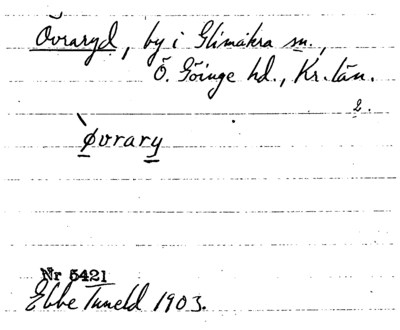 Övraryd, by i Glimåkra sn.,
Ö. Göinge hd., Kr. län.
2.
`øvrary
Nr 5421
Ebbe Tuneld 1903.